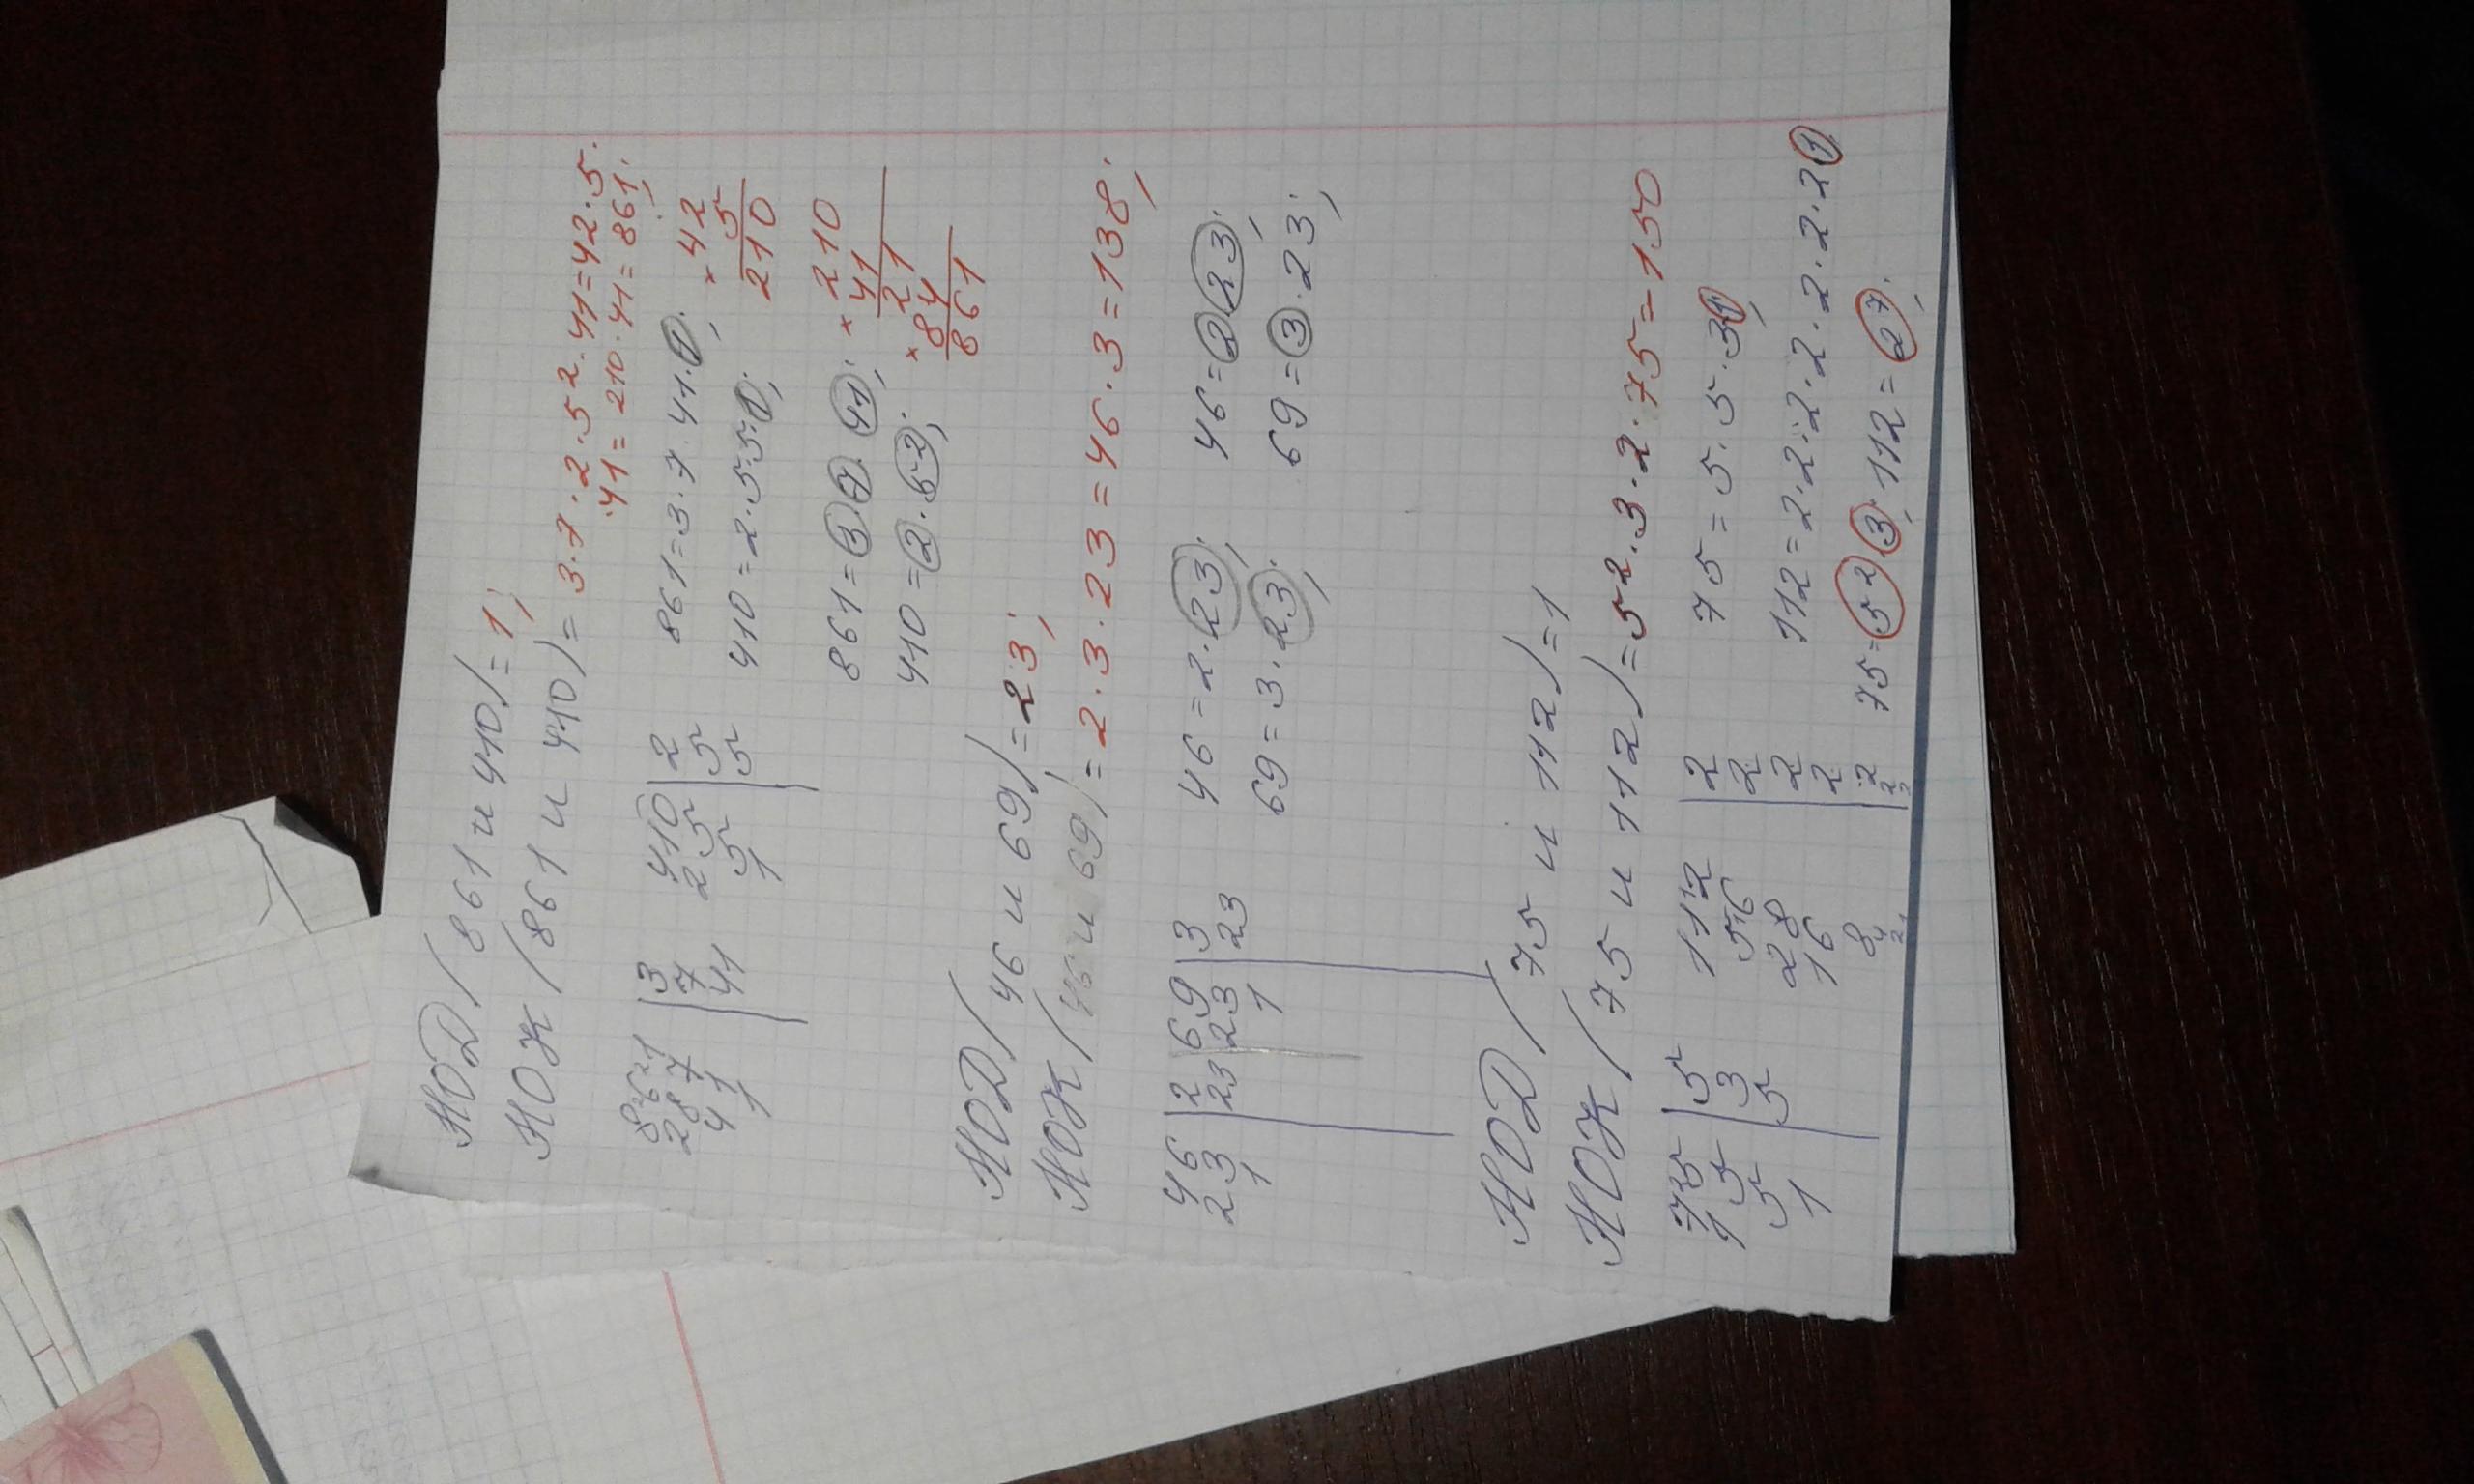 НОД (861 и 410) = 1;
НОК (861 и 410) = 3·7·2·5²·41=42·5·
·41= 210·41= 861;
861 | 3
287 | 7
41 | 41
1
410 | 2
25 | 5
5 | 5
1
861=3·7·41·1;
410=2·5·5·1;
×42
5
210
861=3·7·41;
410=2·5²;
×210
41
21
×84
861
НОД (46 и 69) = 23;
НОК (46 и 69) = 2·3·23=46·3=138;
46 | 2
23 | 23
1
69 | 3
23 | 23
1
46=2·23;
69=3·23;
46=2·23;
69=3·23;
НОД (75 и 112) = 1
НОК (75 и 112) = 5²·3·2·75=150
75 | 5
15 | 3
5 | 5
1
112 | 2
56 | 2
28 | 2
16 | 2
8 | 2
4 | 2
2 | 2
1
75=5·5·3·1;
112=2·2·2·2·2·2·2·1
75=5²·3; 112=2⁷;